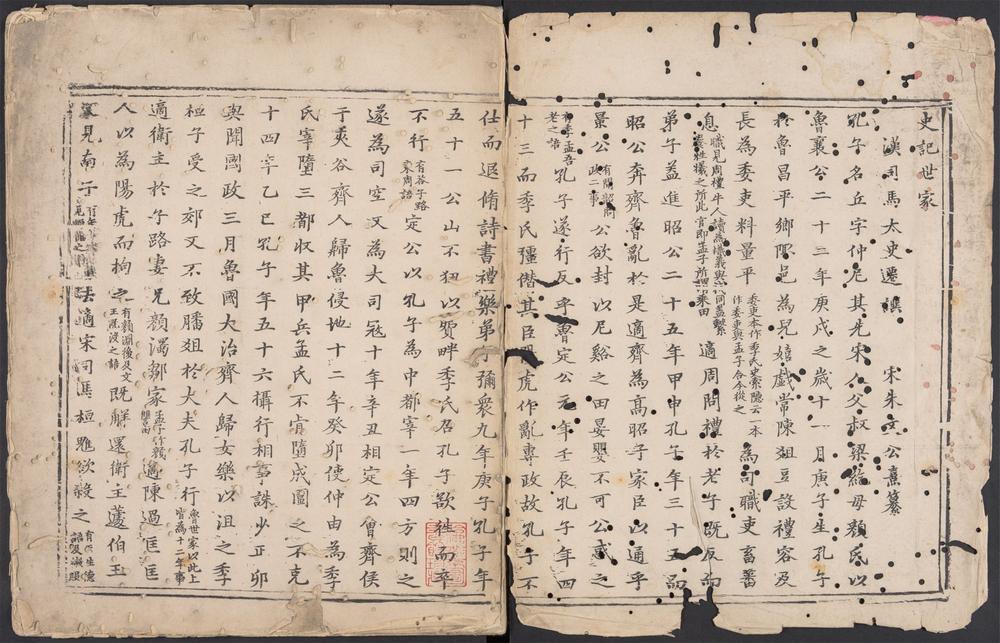 史記世家
漢司馬太史遷譔 宋朱文公熹纂
孔子名丘字仲尼其先宋人父叔梁紇母顏氏以
魯襄公二十三年庚戌之歲十一月庚子生孔子
於魯昌平鄉陬邑為兒嬉戲常陳俎豆設禮容及
長為委吏料量平委吏本作季氏史索隱云一本作委吏與孟子合今從之為司職吏畜蕃
息職見周禮牛人讀為樴義與杙同蓋繫養牲犧之所此官即孟子所謂乘田適周問禮於老子既反而
弟子益進昭公二十五年甲申孔子年三十五而
昭公奔齊魯亂於是適齊為高昭子家臣以通乎
景公有聞韶問政二事公欲封以尼谿之田晏嬰不可公惑之
有季孟吾老之語孔子遂行反乎魯定公元年壬辰孔子年四
十三而季氏彊僭其臣陽虎作亂專政故孔子不
仕而退脩詩書禮樂弟子彌衆九年庚子孔子年
五十一公山不狃以費畔季氏召孔子欲往而卒
不行有答子路東周語定公以孔子為中都宰一年四方則之
遂為司空又為大司寇十年辛丑相定公會齊侯
于夾谷齊人歸魯侵地十二年癸卯使仲由為季
氏宰墮三都収其甲兵孟氏不肯隨成圍之不克
十四年乙巳孔子年五十六攝行相事誅少正卯
與聞國政三月魯國大治齊人歸女樂以沮之季
桓子受之郊又不致膰俎於大夫孔子行魯世家以此上皆為十二年事
適衛主於子路妻兄顏濁鄒家孟子作顏讎由適陳過匡匡
人以為陽虎而拘之有顏淵後及文王既沒之語既解還衛主蘧伯玉
家見南子去適宋司馬桓魋欲殺之有天生德語及微服